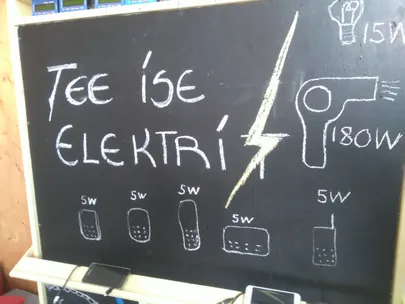 15W
TEE ISE
ELEKTRIT
180W
5W
5W
5W
5W
5W